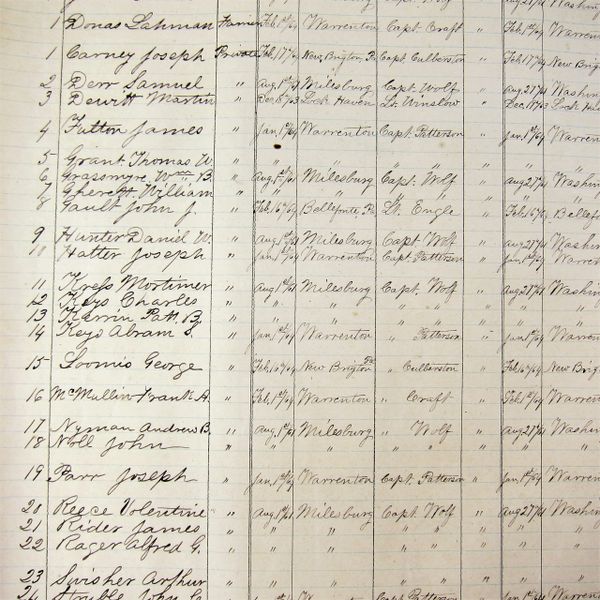 Aug 1st/61 Washing
1 Donas Lahman Farrier Feb, 1st/64 Warrenton Capt. Craft " Feb 1st/64 Warren
1 Carney Joseph Private Feb, 17th/64 New Brigton, Pa Capt Culberston " Feb 17/64 New Brig
2 Derr Samuel " Aug 1st/61 Milesburg Capt. Wolf " Aug 27/61 Washin
3 Dewitt Martin " Dec 18/63 Lock Haven Lt. Winslow " Dec. 18/63 Lock Ha
4 Futton James " Jan, 1st/64 Warrenton Capt. Patterson " Jan 1st/64 Warren
5 Grant Thomas W. " " " " " "
6 Grassmyre, Wm B. " Aug 1st/61 Milesburg Capt. Wolf " Aug 27/61 Washin
7 Gherett William " " " " " " "
8 Gault John J. " Feb, 16/64 Bellefonte, Pa Lt. Engle " Feb 16/64 Bellef
9 Hunter Daniel W. " Aug 1st/61 Milesburg Capt Wolf " Aug 27/61 Washin
10 Hatter Joseph " Jan 1st/64 Warrenton Capt. Patterson " Jan 1st/64 Warren
11 Kress Mortimer " Aug 1st/61 Milesburg Capt. Wolf " Aug 27/61 Washing
12 Keys Charles " " " " " " "
13 Kerrin Patt. B. " " " " " " "
14 Keys Abram S. " Jan 1st/64 Warrenton " Patterson " Jan 1st/64 Warren
15 Loomis George " Feb, 16/64 New Brigton Pa " Culberston " Feb, 16/64 New Brig
16 McMullin Frank A. " Feb, 1st/64 Warrenton " Craft " Feb, 1st/64 Warren
17 Nyman Andrew B. " Aug 1st/61 Milesburg " Wolf " Aug 27/61 Washing
18 Noll John " " " " " " "
19 Parr Joseph " Jan 1st/64 Warrenton Capt. Patterson " Jan 1st/64 Warren
20 Reece Volentine " Aug 1st/61 Milesburg Capt Wolf " Aug 27/61 Washing
21 Rider James " " " " " " "
22 Rager Alfred G. " " " " " " "
23 Swisher Arthur " " " " " " "
24 John " Capt Patterson " Jan 1st/64 Warren